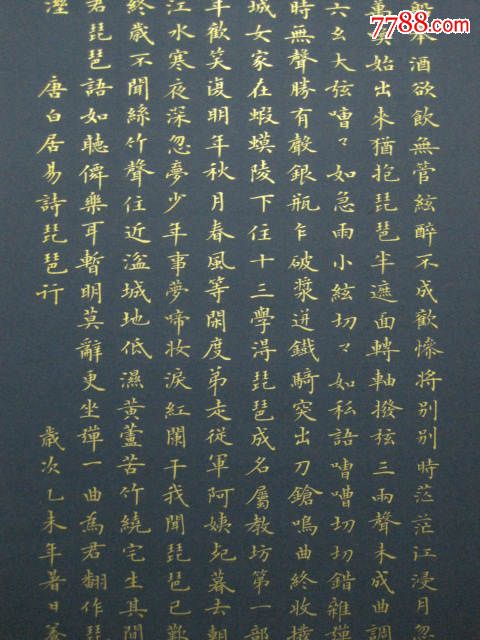 7788.com
酒欲飲無管絃醉不成歡慘將别别時茫茫江浸月忽
萬喚始出來猶抱琵琶半遮面轉軸撥弦三兩聲未成曲調
六幺大弦嘈々如急雨小絃切々如私語嘈嘈切切錯雜彈
時無聲勝有聲銀瓶乍破漿迸鐵騎突出刀鎗鳴曲終收撥
城女家在蝦蟆陵下住十三學得琵琶成名屬教坊第一部
年歡笑復明年秋月春風等閑度弟走從軍阿姨死暮去朝
江水寒夜深忽夢少年事夢啼妝淚紅闌干我聞琵琶已歎
終歲不聞絲竹聲住近湓城地低濕黃蘆苦竹繞宅生其間
君琵琶語如聽僊樂耳暫明莫辭更坐彈一曲為君翻作琵
溼 唐白居易詩琵琶行 歲次乙未年暑日